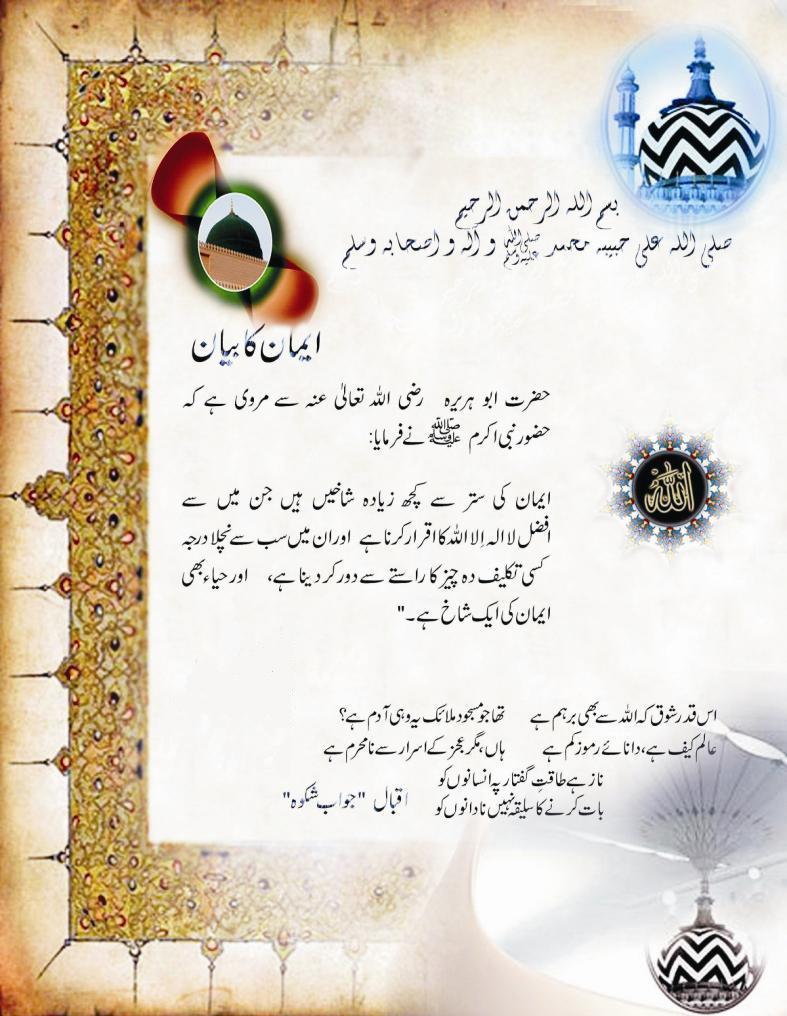 بسم اللہ الرحمن الرحیم
صلی اللہ علی حبیبہ محمد ﷺ و آلہ و اصحابہ وسلم
ایمان کا بیان
حضرت ابو ہریرہ رضی اللہ تعالیٰ عنہ سے مروی ہے کہ
حضور نبی اکرم ﷺ نے فرمایا:
ایمان کی ستر سے کچھ زیادہ شاخیں ہیں جن میں سے
افضل لا الہ اِلا اللہ کا اقرار کرنا ہے اور ان میں سب سے نچلا درجہ
کسی تکلیف دہ چیز کا راستے سے دور کر دینا ہے، اور حیاء بھی
ایمان کی ایک شاخ ہے۔"
اللہ
اس قدر شوق کہ اللہ سے بھی برہم ہے تھا جو مسجود ملائک یہ وہی آدم ہے؟
عالم کیف ہے، دانائے رموز کم ہے ہاں، مگر عجز کے اسرار سے نامحرم ہے
ناز ہے طاقتِ گفتار پہ انسانوں کو
بات کرنے کا سلیقہ نہیں نادانوں کو اقبال "جواب شکوہ"